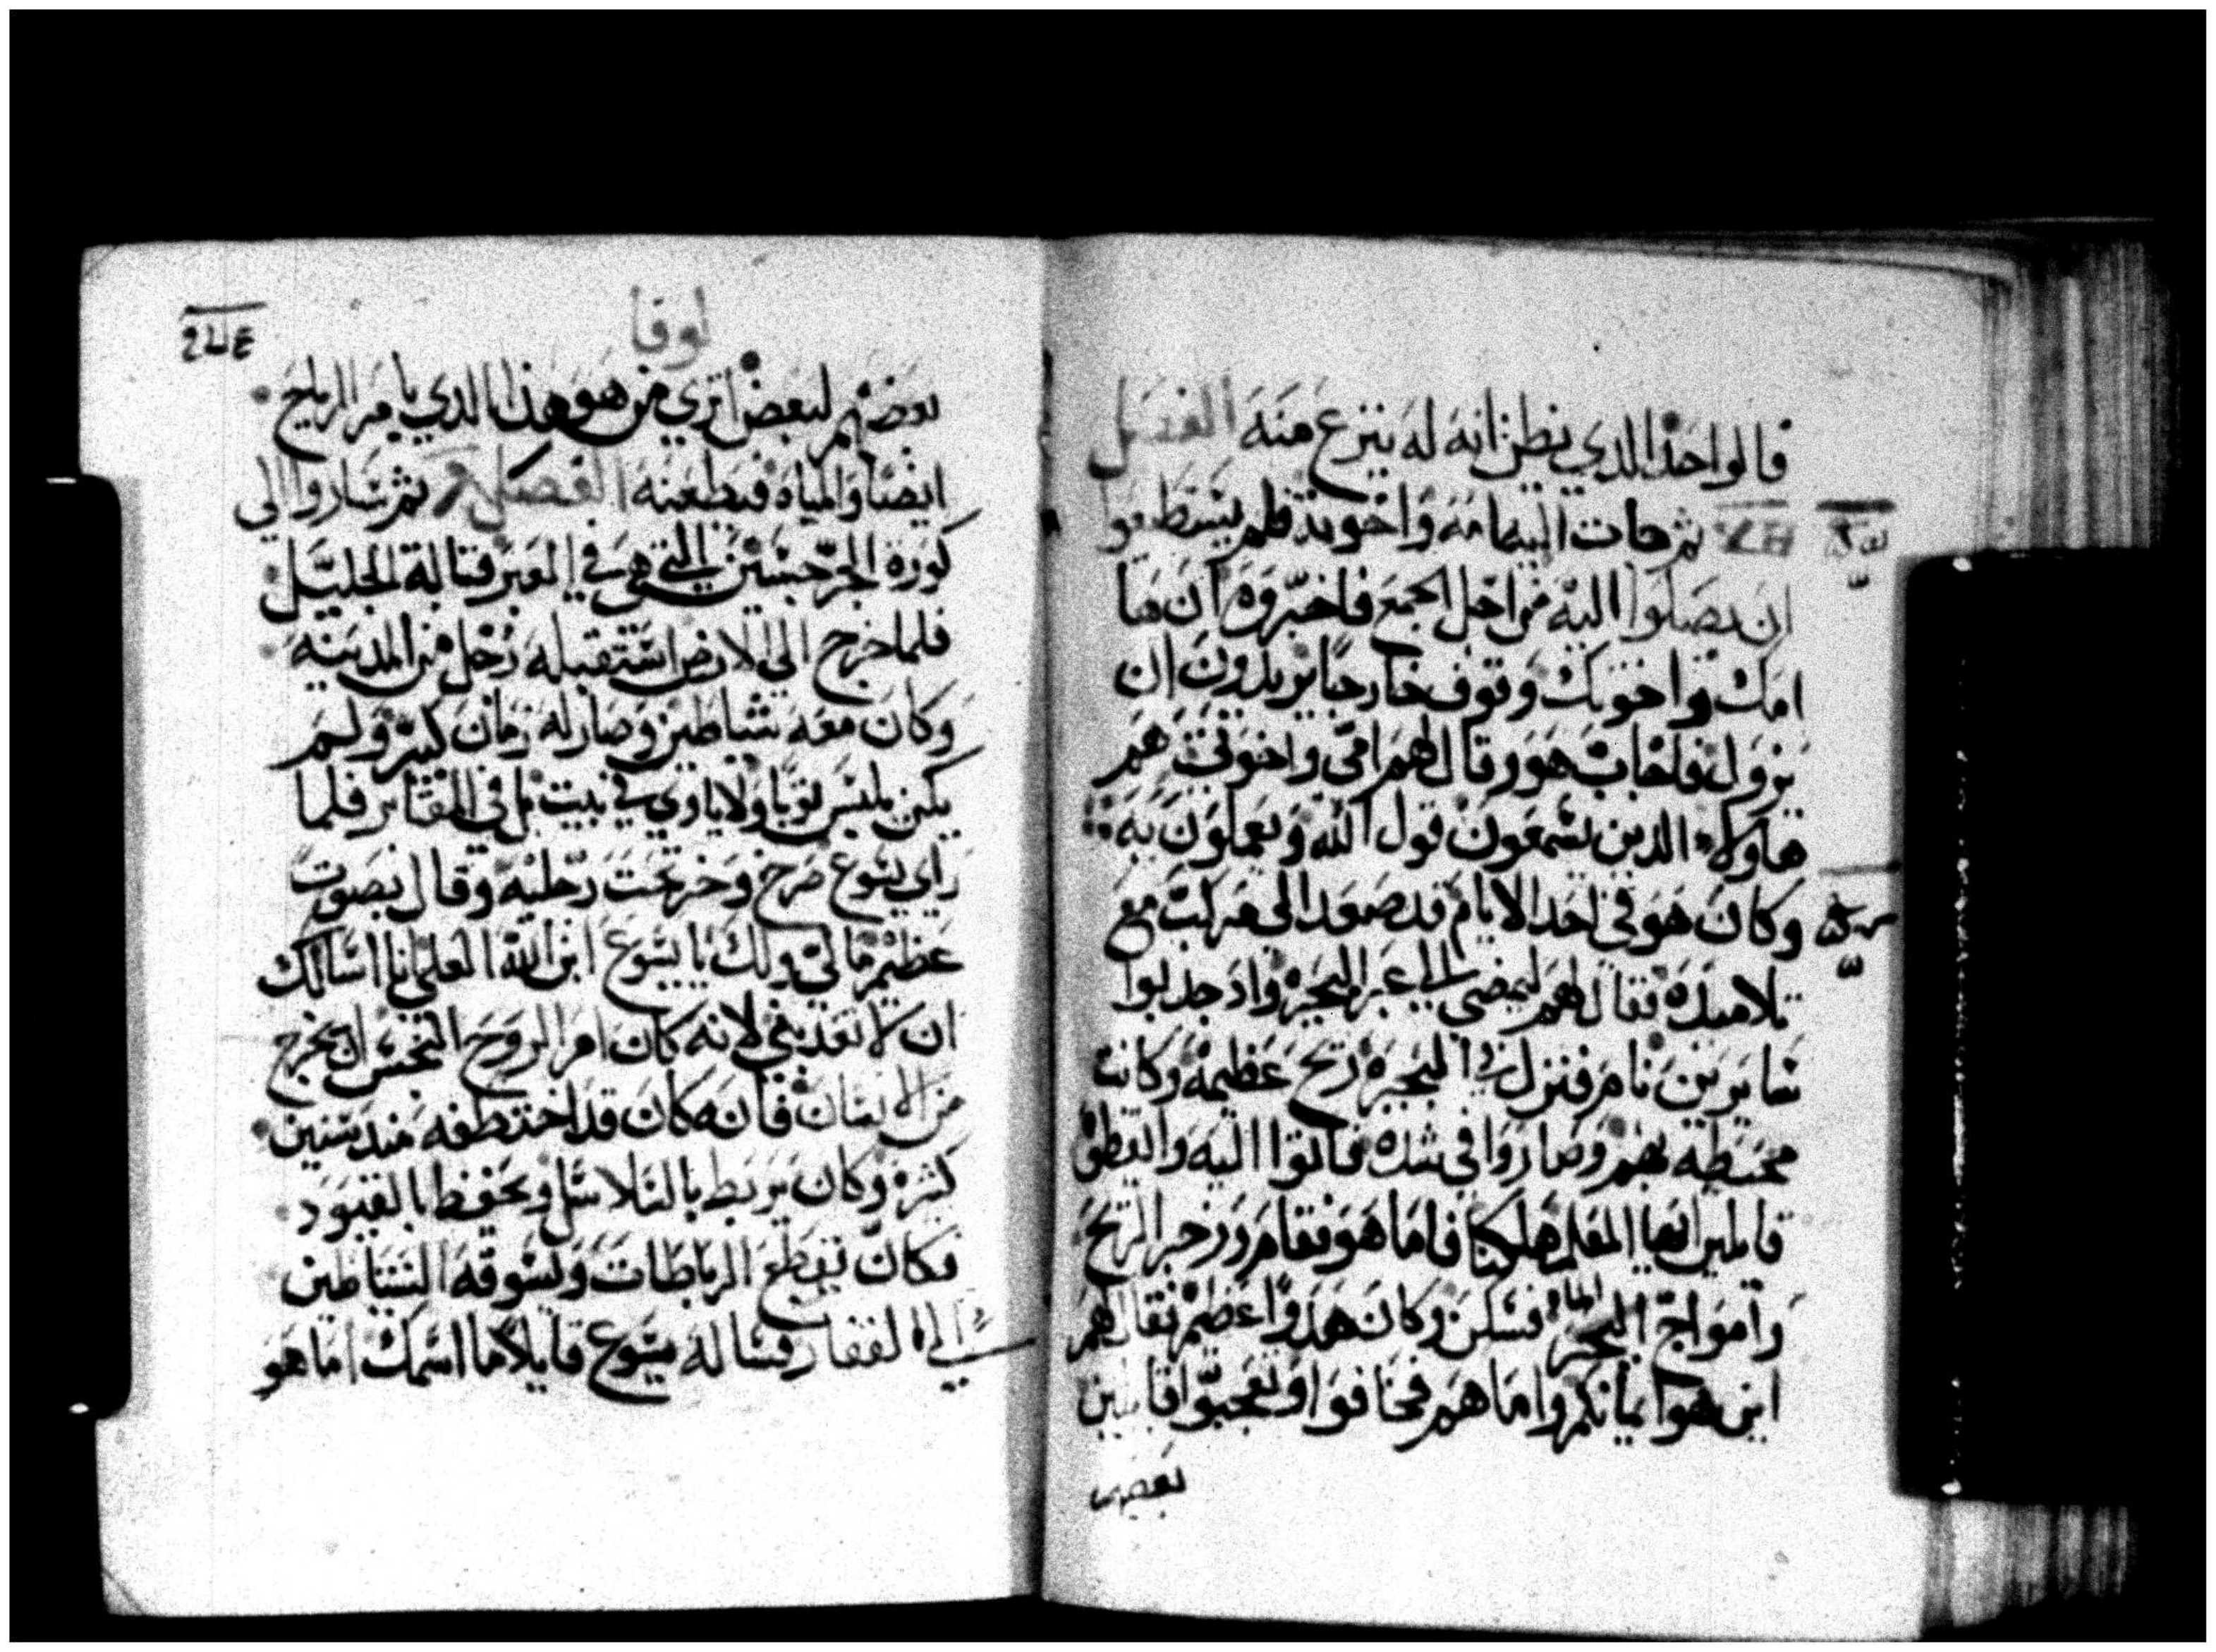 قالواحذ الدي يظن انه له ينزع منه الفصل
ثم جات اليه امه واخوته فلم يستطيعوا
ان يصلوا اليه من اجل الجمع فاخبروه ان ها
امك واخوتك وقوف خارجا يريدون ان
يروك فاجاب هو وقال لهم امي واخوتي هم
هاولاء الدين يسمعون قول الله ويعملون به
وكان هو في احد الايام قد صعد الى مركب مع
تلاميده فقال لهم ليمضي الي عبر البحيرة واد جدبوا
سايرين نام فنزل في البحيره ريح عظيمة وكانت
محيطه بهم وصاروا في شده فاتوا اليه وايقظوه
قايلين ايها المعلم هلكنا فاما هو فقام وزجر الريح
وامواج البحر الماء فسكن وكان هدوا عظيم فقال لهم
اين هو ايمانكم واما هم فخافوا وتعجبوا قايلين
بعضهم
لوقا
بعضهم لبعض اتري من هو هذا الدي يامر الرياح
ايضا والمياه فيطعنه الفصل ثم ساروا الي
كورة الجرجسيين التي هي في العبر قبالة الجليل
فلما خرج الى الارض استقبله رجل من المدينه
وكان معه شياطين وصار له زمان كبير ولم
يكن يلبس ثوبا ولا ياوي في بيت بل في المقابر فلما
راي يسوع صرخ وخر تحت رجليه وقال بصوت
عظيم ما لي ولك يا يسوع ابن الله العلي انا اسالك
ان لا تعدبني لانه كان امر الروح النجس ان يخرج
من الانسان فانه كان قد اختطفه مند سنين
كثيرة وكان يربط بالسلاسل ويحفظ بالقيود
فكان يقطع الرباطات وتسوقه الشياطين
الي القفار فساله يسوع قايلا ما اسمك اما هو